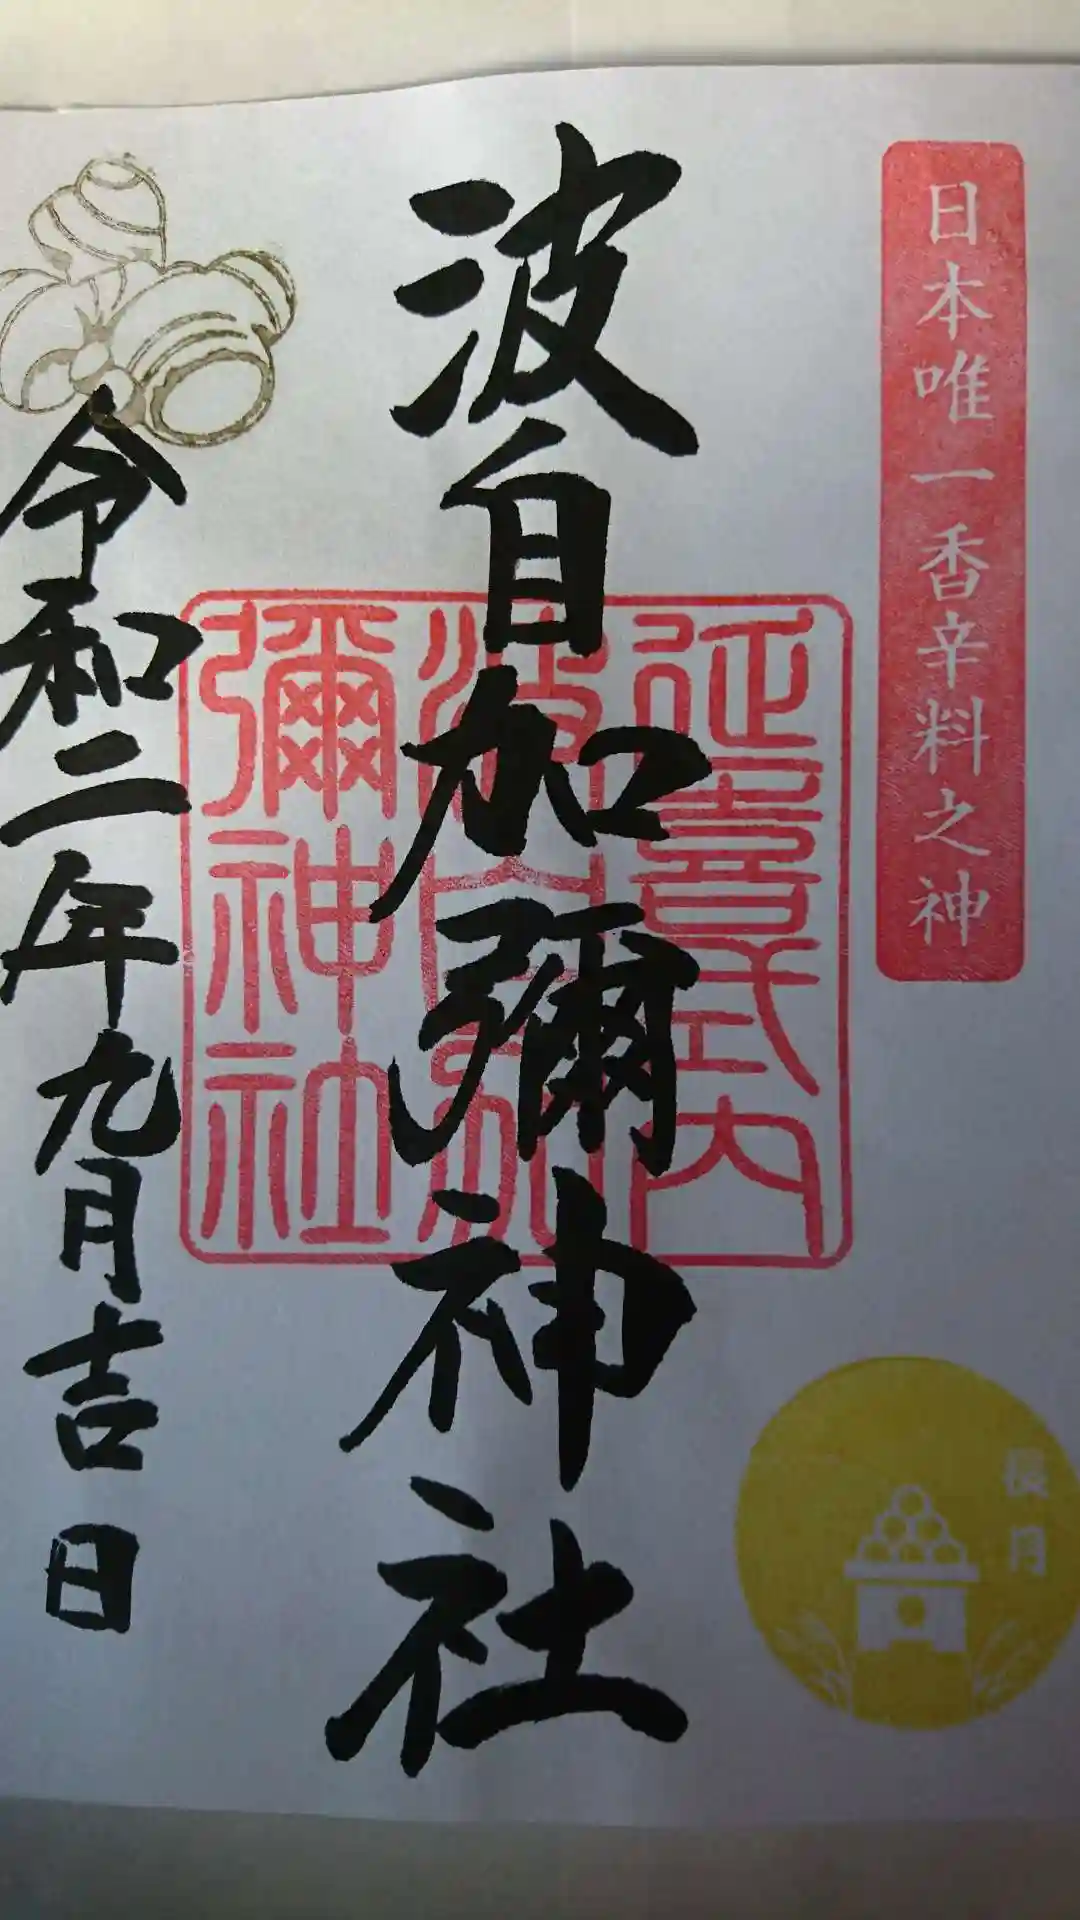 日本唯一香辛料之神
波自加彌神社
延喜式内
波自加
彌神社
令和二年九月吉日
長月